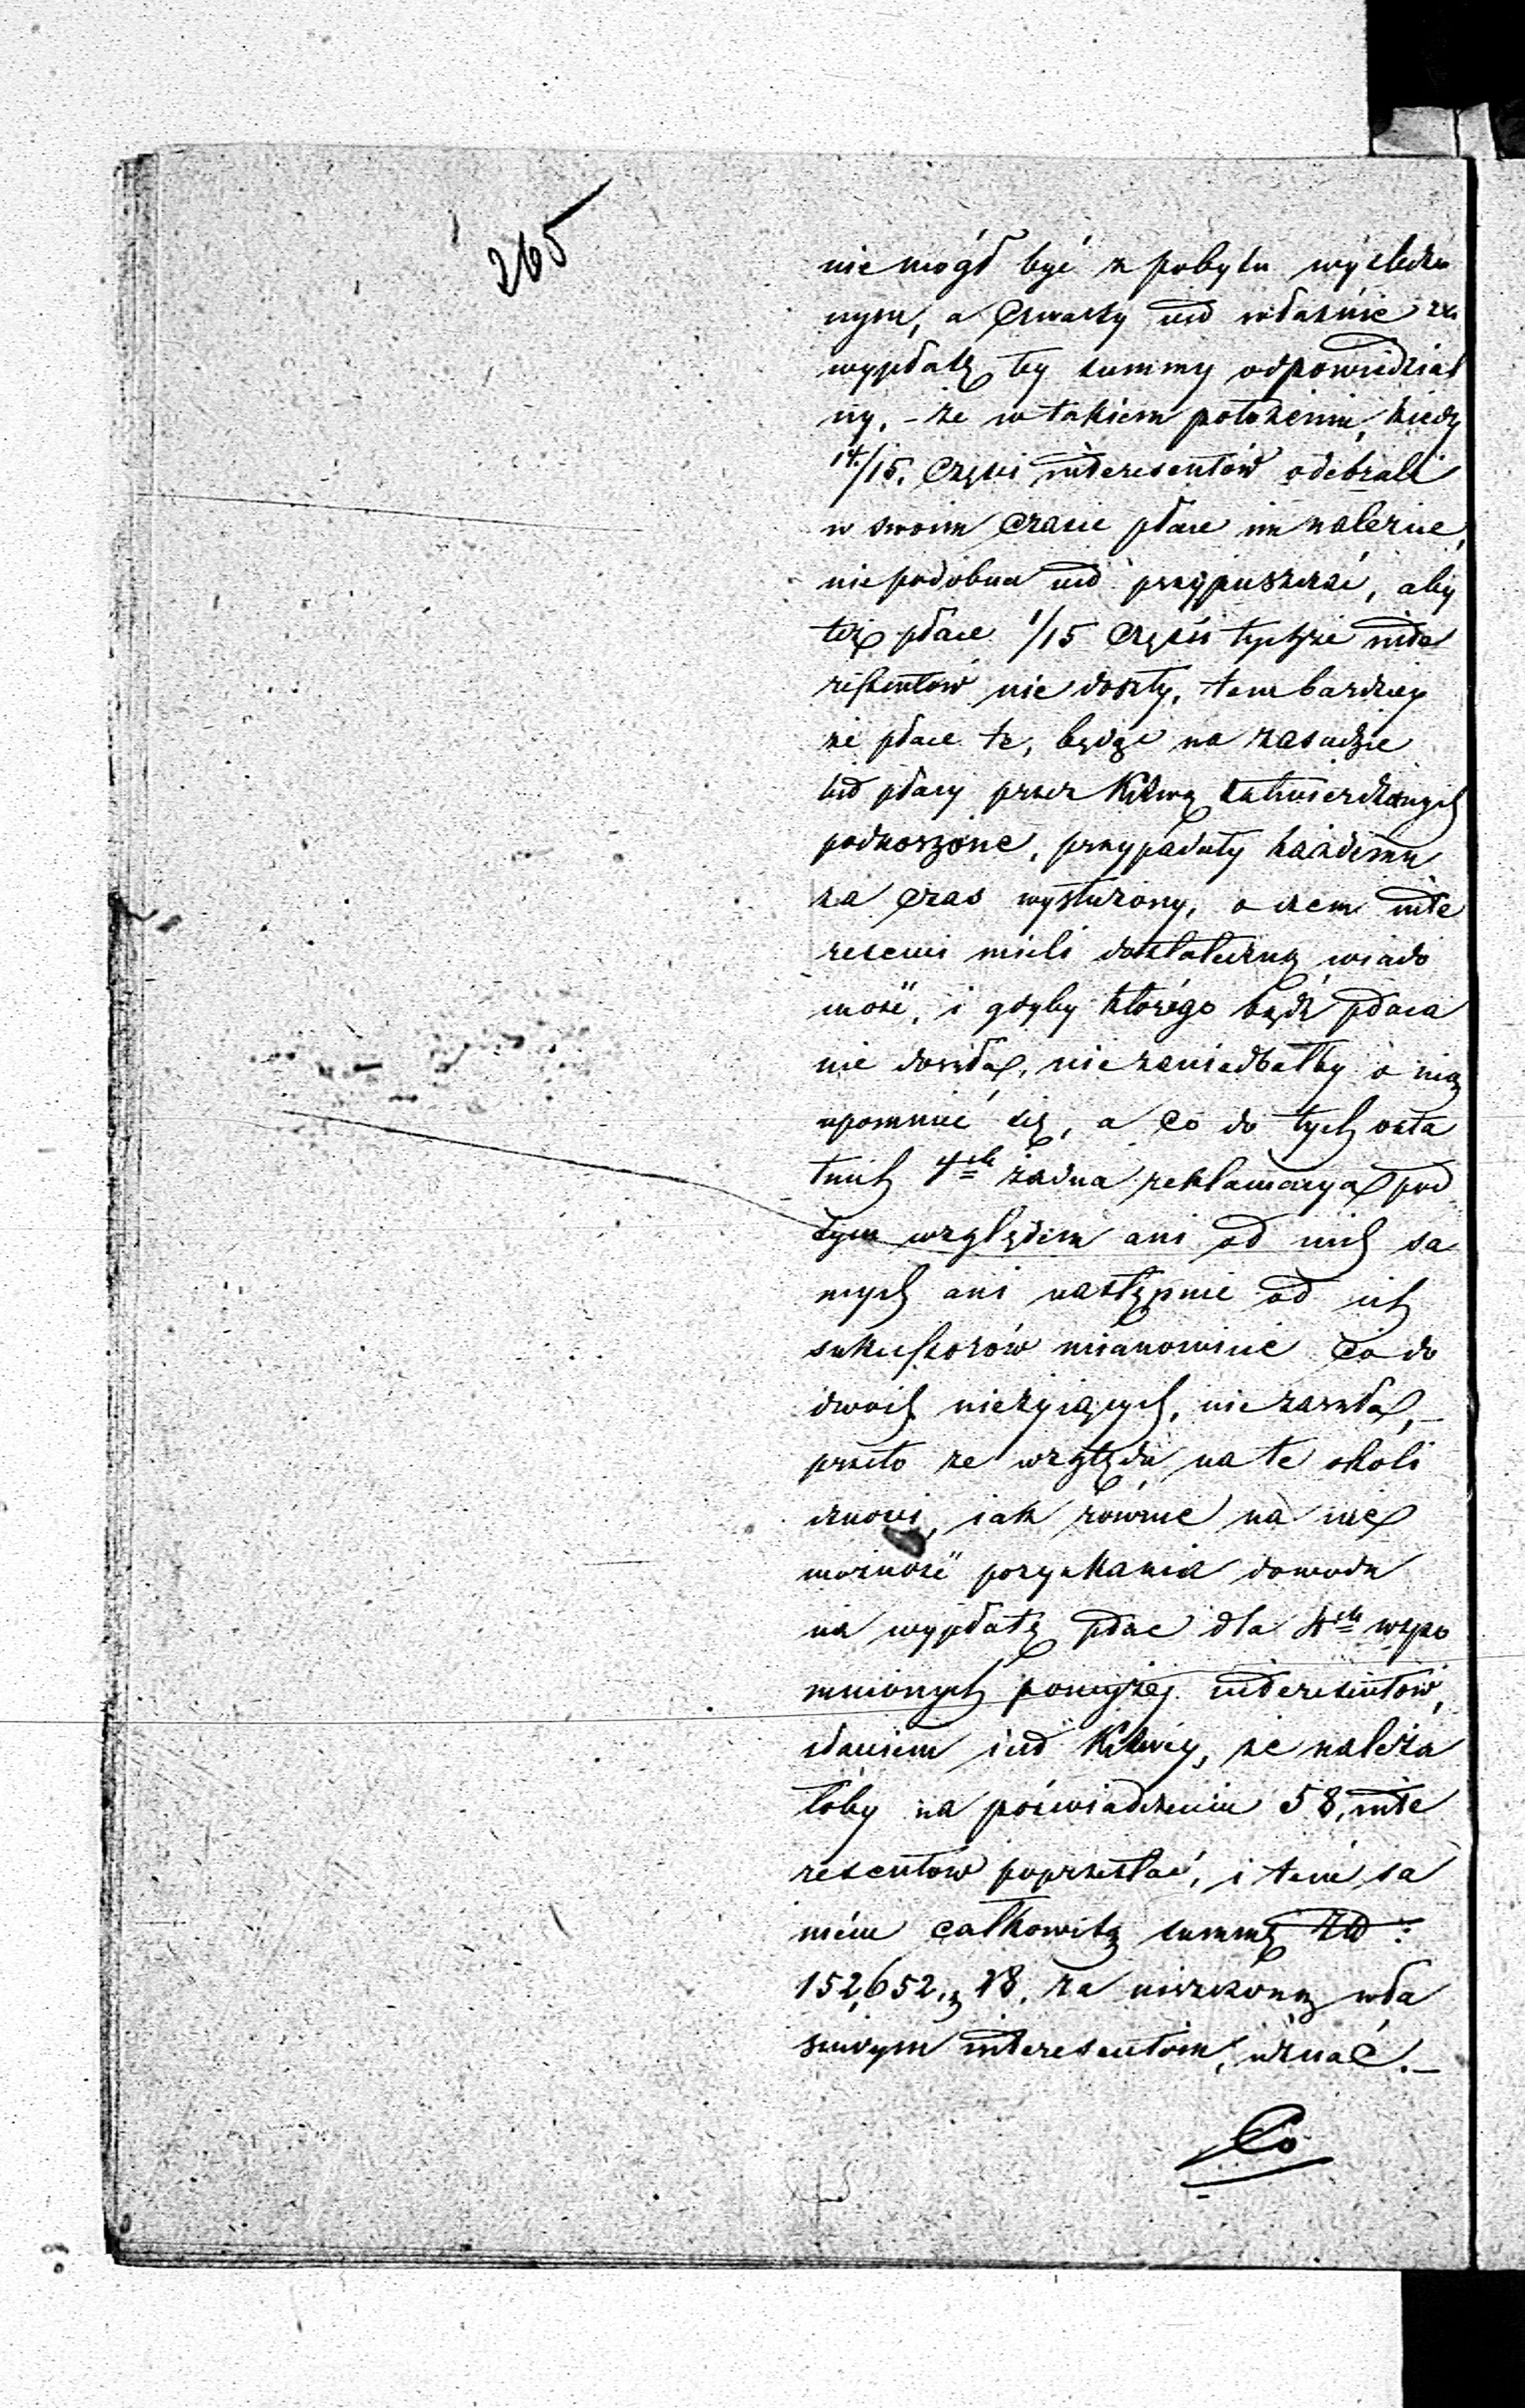 265
nie mógł być z pobytu wyśledzo
nym, a Czwarty jest właśnie za
wypłatę tey summy odpowiedzial
ny, - że w takiem położeniu, kiedy
14/15. Części interesentów odebrali
w swoim czasie płace im należne,
niepodobna jest przypuszczać, aby
też płace 1/15 Części tychże inte
ressentów nie doszły, tem bardziey
że płace te, będąc na zasadzie
list płacy przez zatwierdzonych
podnoszone, przypadały każdemu
za czas wysłużony, o czem inte
resenci mieli dostateczną wiado
mość, i gdyby którego bądź płaca
nie doszła, nie zaniedbałby o nią
upomnieć się, a co do tych osta
tnich 4ch żadna reklamacya pod
tym względem ani od nich sa
mych ani następnie od ich
sukcessorów mianowicie co do
dwóch nieżyiących, nie zaszła, –
przeto ze względu na te okoli
czności, iak równie na nie
możność pozyskania dowodu
na wypłatę płac dla 4ch wspo
mnionych powyżej interesentów,
zdaniem jest że należa
łoby na poświadczeniu 58, inte
resentów poprzestać, i tem sa
mém całkowitą summę Złp:
152,652. g 28. za uiszczoną wła
ściwym interesentom, uznać. –
Co